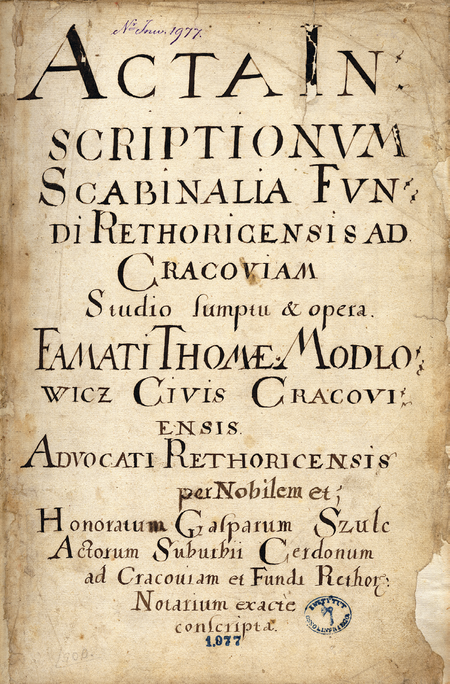 No Inw. 1977.
ACTA IN:
SCRIPTIONVM
SCABINALIA FVN:
DI RETHORICENSIS AD
CRACOVIAM
Studio sumptu & opera.
FAMATI THOMÆ MODLO:
WICZ CIVIS CRACOVI:
ENSIS.
ADVOCATI RETHORICENSIS
per Nobilem et;
Honoratum Gasparum Szulc
Actorum Suburbii Cerdonum
ad Cracoviam et Fundi Rethor:
Notarium exacte
conscripta.
1.977